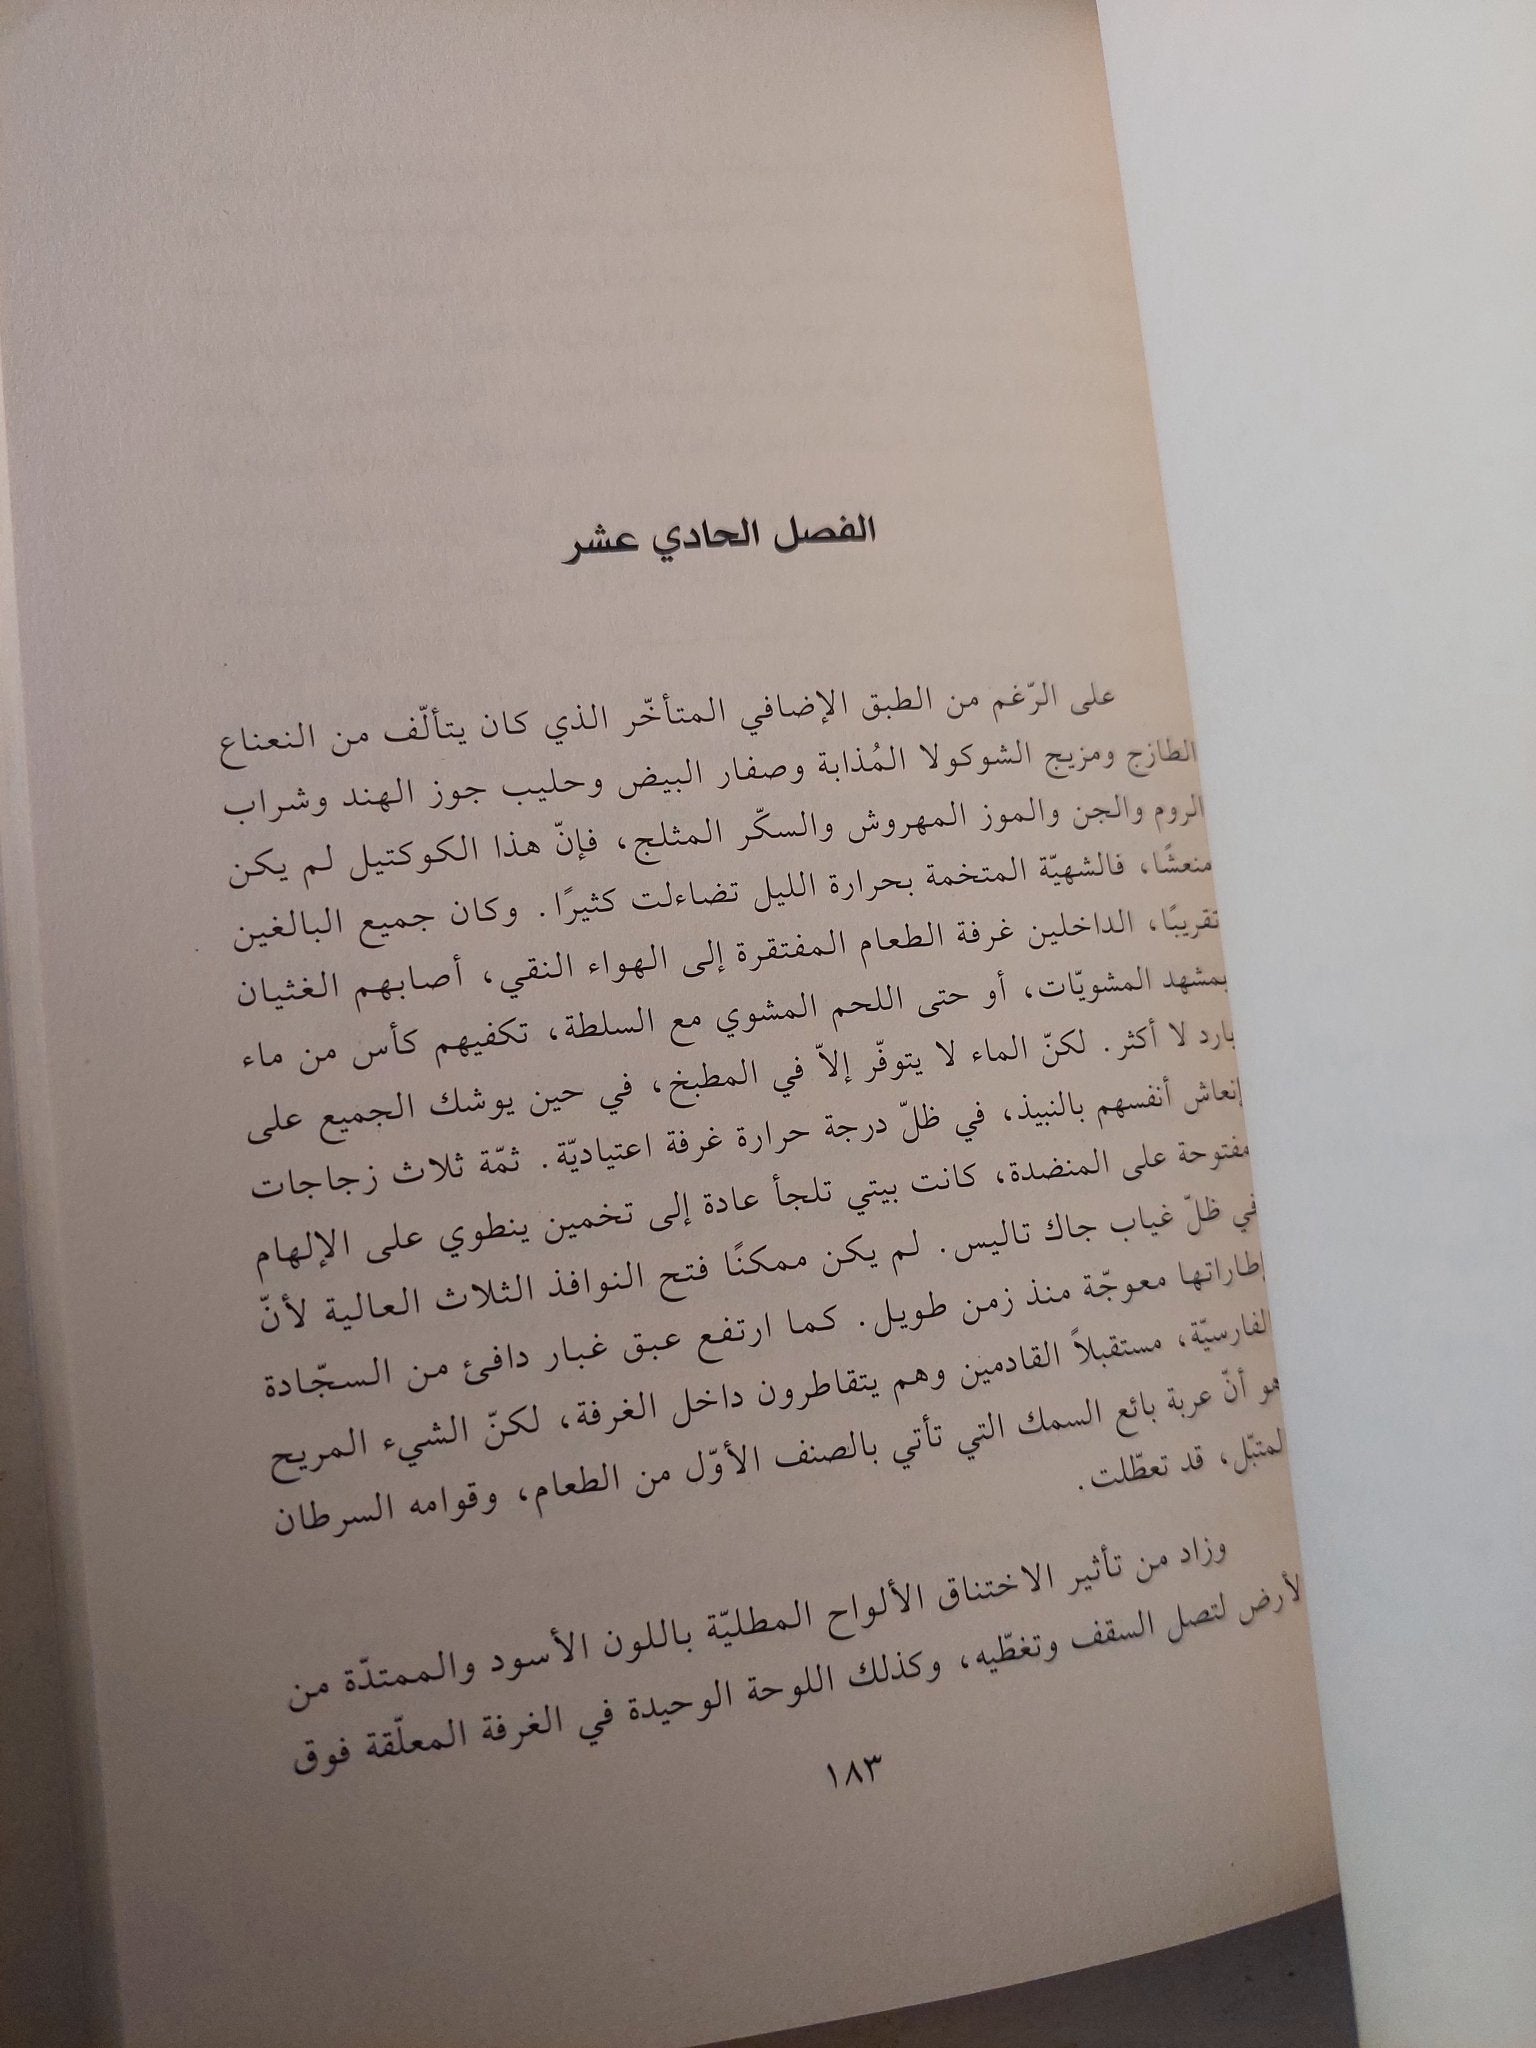 الفصل الحادي عشر
على الرّغم من الطبق الإضافي المتأخّر الذي كان يتألّف من النعناع
الطازج ومزيج الشوكولا المُذابة وصفار البيض وحليب جوز الهند وشراب
الروم والجن والموز المهروش والسكّر المثلج، فإنّ هذا الكوكتيل لم يكن
منعشًا، فالشهيّة المتخمة بحرارة الليل تضاءلت كثيرًا. وكان جميع البالغين
تقريبًا، الداخلين غرفة الطعام المفتقرة إلى الهواء النقي، أصابهم الغثيان
بمشهد المشويّات، أو حتى اللحم المشوي مع السلطة، تكفيهم كأس من ماء
بارد لا أكثر. لكنّ الماء لا يتوفّر إلاّ في المطبخ، في حين يوشك الجميع على
إنعاش أنفسهم بالنبيذ، في ظلّ درجة حرارة غرفة اعتياديّة. ثمّة ثلاث زجاجات
مفتوحة على المنضدة، كانت بيتي تلجأ عادة إلى تخمين ينطوي على الإلهام
في ظلّ غياب جاك تاليس. لم يكن ممكنًا فتح النوافذ الثلاث العالية لأنّ
إطاراتها معوجّة منذ زمن طويل. كما ارتفع عبق غبار دافئ من السجّادة
الفارسيّة، مستقبلاً القادمين وهم يتقاطرون داخل الغرفة، لكنّ الشيء المريح
هو أنّ عربة بائع السمك التي تأتي بالصنف الأوّل من الطعام، وقوامه السرطان
المتبّل، قد تعطّلت.
وزاد من تأثير الاختناق الألواح المطليّة باللون الأسود والممتدّة من
الأرض لتصل السقف وتغطّيه، وكذلك اللوحة الوحيدة في الغرفة المعلّقة فوق
١٨٣